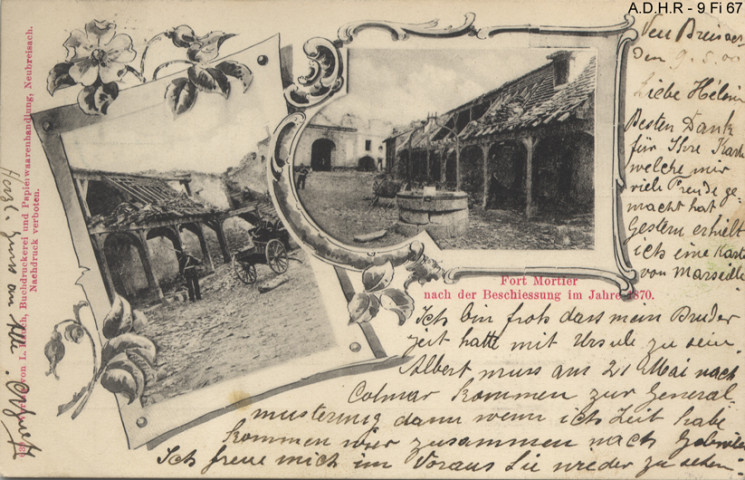 A.D.H.R - 9 Fi 67
Neu Breisac
den 9.5.00
Liebe Hélèn
Besten Dank
für Ihre Kart
welche mir
viele Freude ge-
macht hat
Gestern erhielt
ich eine Karte
von Marseille.
Fort Mortier
nach der Beschiessung im Jahre 1870.
Ich bin froh dass mein Bruder
Zeit hatte mit Ursule zu sein.
Albert muss am 21 Mai nach
Colmar kommen zur General
musterung dann wenn ich Zeit habe
kommen wir zusammen nach
Ich freue mich im Voraus Sie wieder zu sehen.
von L. Buchdruckerei und Papierwaarenhandlung, Neubreisach.
Nachdruck verboten.
Herzl. Gruss an